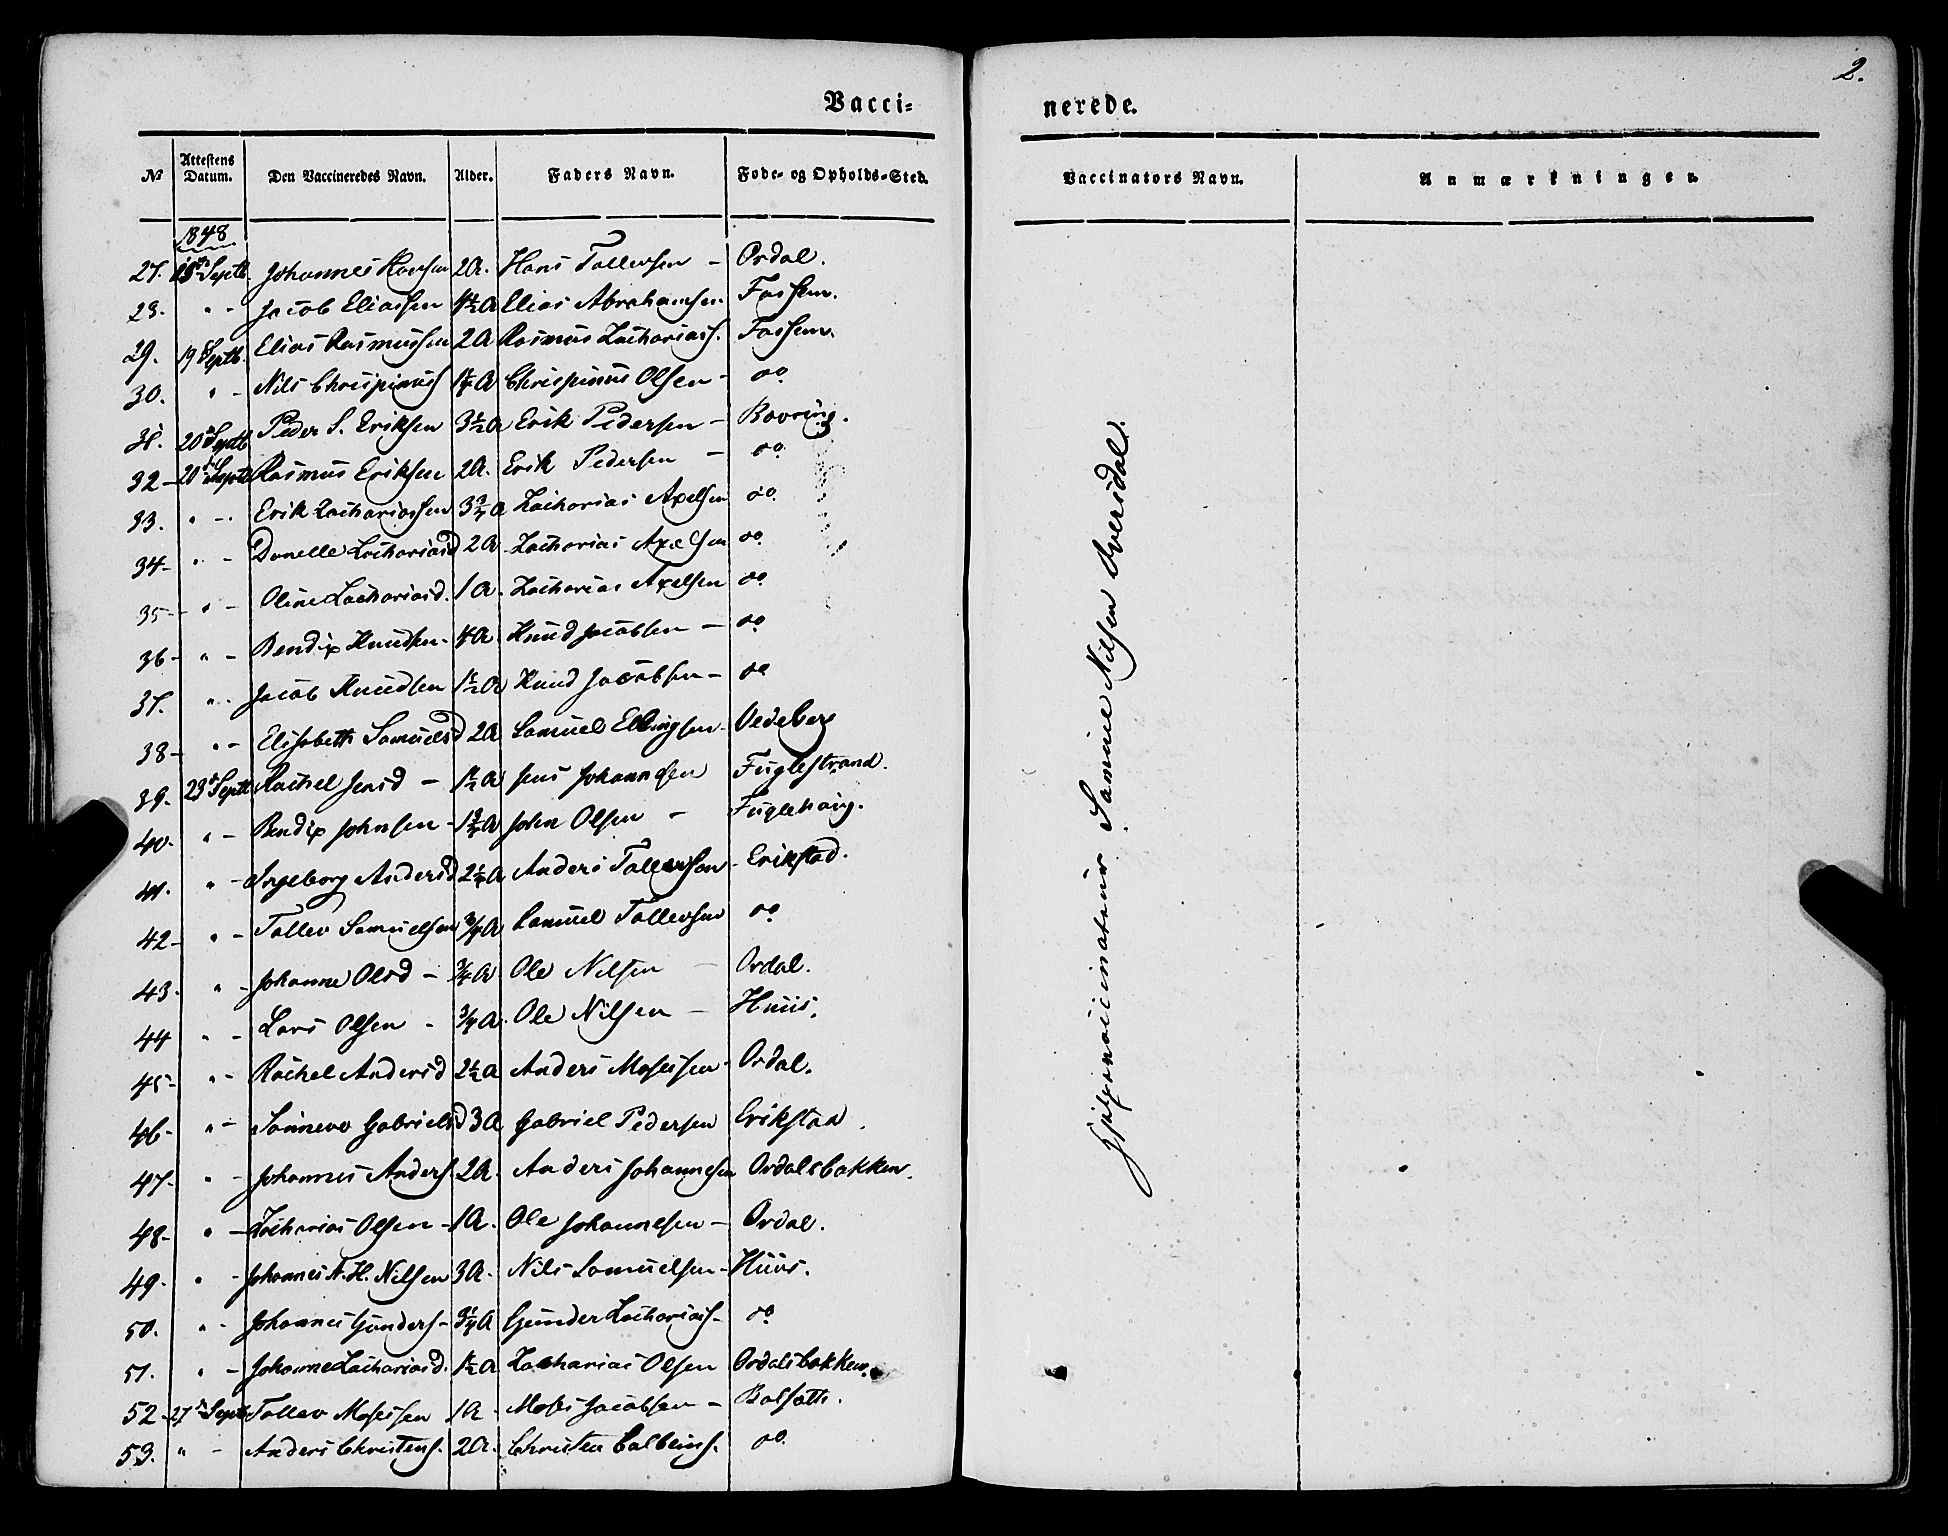 2.
Vacci- nerede.
No Attestens Datum. Den Vaccineredes Navn. Alder. Faders Navn. Føde- og Opholds-Sted. Vaccinators Navn. Anmærkninger.
1848
27. 15 Septb. Johannes Hansen 2A. Hans Tollevsen - Ordal.
28. " - Jacob Eliassen 4½A Elias Abrahamsen Fossem.
29. 19 Septb. Elias Rasmussen 2A Rasmus Zachariass. Fossem.
30. " - Nils Chrispinus Chrispinus Olsen - do
31. 20 Septb Peder S. Eriksen 3½A Erik Pedersen - Bovring.
32 - 20 Septb Rasmus Eriksen 2A. Erik Pedersen - do
33. " - Erik Zachariassen 3¾A Zacharias Axelsen do
34 - " - Zachariasd 2A Zacharias Axelsen do
35 - " - Oline Zachariasd. 1A. Zacharias Axelsen do
36 - " - Bendix Knudsen - 4A. Knud Jacobsen - do
37. " - Jacob Knudsen 1½A Knud Jacobsen - do
38 - " - Elisabeth Samuelsd 2A Samuel Ellingsen -
39. 23 Septb Rachel Jensd - 1½A Jens Johannesen Fuglestrand.
40 - " - Bendix Johnsen - 1¾A John Olsen - Fuglehaug.
41. " - Ingeborg Andersd 2¼A Anders Tollevsen - Erikstad.
42 - " - Tollev Samuelsen ¾A Samuel Tollevsen do
43 - " - Johanne Olsd - ¾A Ole Nilsen - Ordal.
44 " - Lars Olsen - ¾A. Ole Nilsen - Huus.
45 - " - Rachel Andersd 2½A Anders Mosessen - Ordal.
46 - " - Sønneve Gabrielsd 3A Gabriel Pedersen Erikstad.
47 - " - Johannes Anders. 2A. Anders Johannesen Ordalsbakken.
48 - " - Zacharias Olsen - 1A. Ole Johannesen - Ordal.
49 - " - Johannes N. H. Nilsen 3A. Nils Samuelsen - Huus.
50. " - Johannes Gunders - 3¼A Gunder Zachariass - do
51. " - Johanne Zachariasd. 1½A Zacharias Olsen Ordalsbakken.
52 - 27 Septb Tollev Mosessen 1A - Moses Jacobsen - Bolsæth.
53. " - Anders Christens. 2A. Christen do
Hjelpevaccinateur Samuel Nilsen Aversdal.